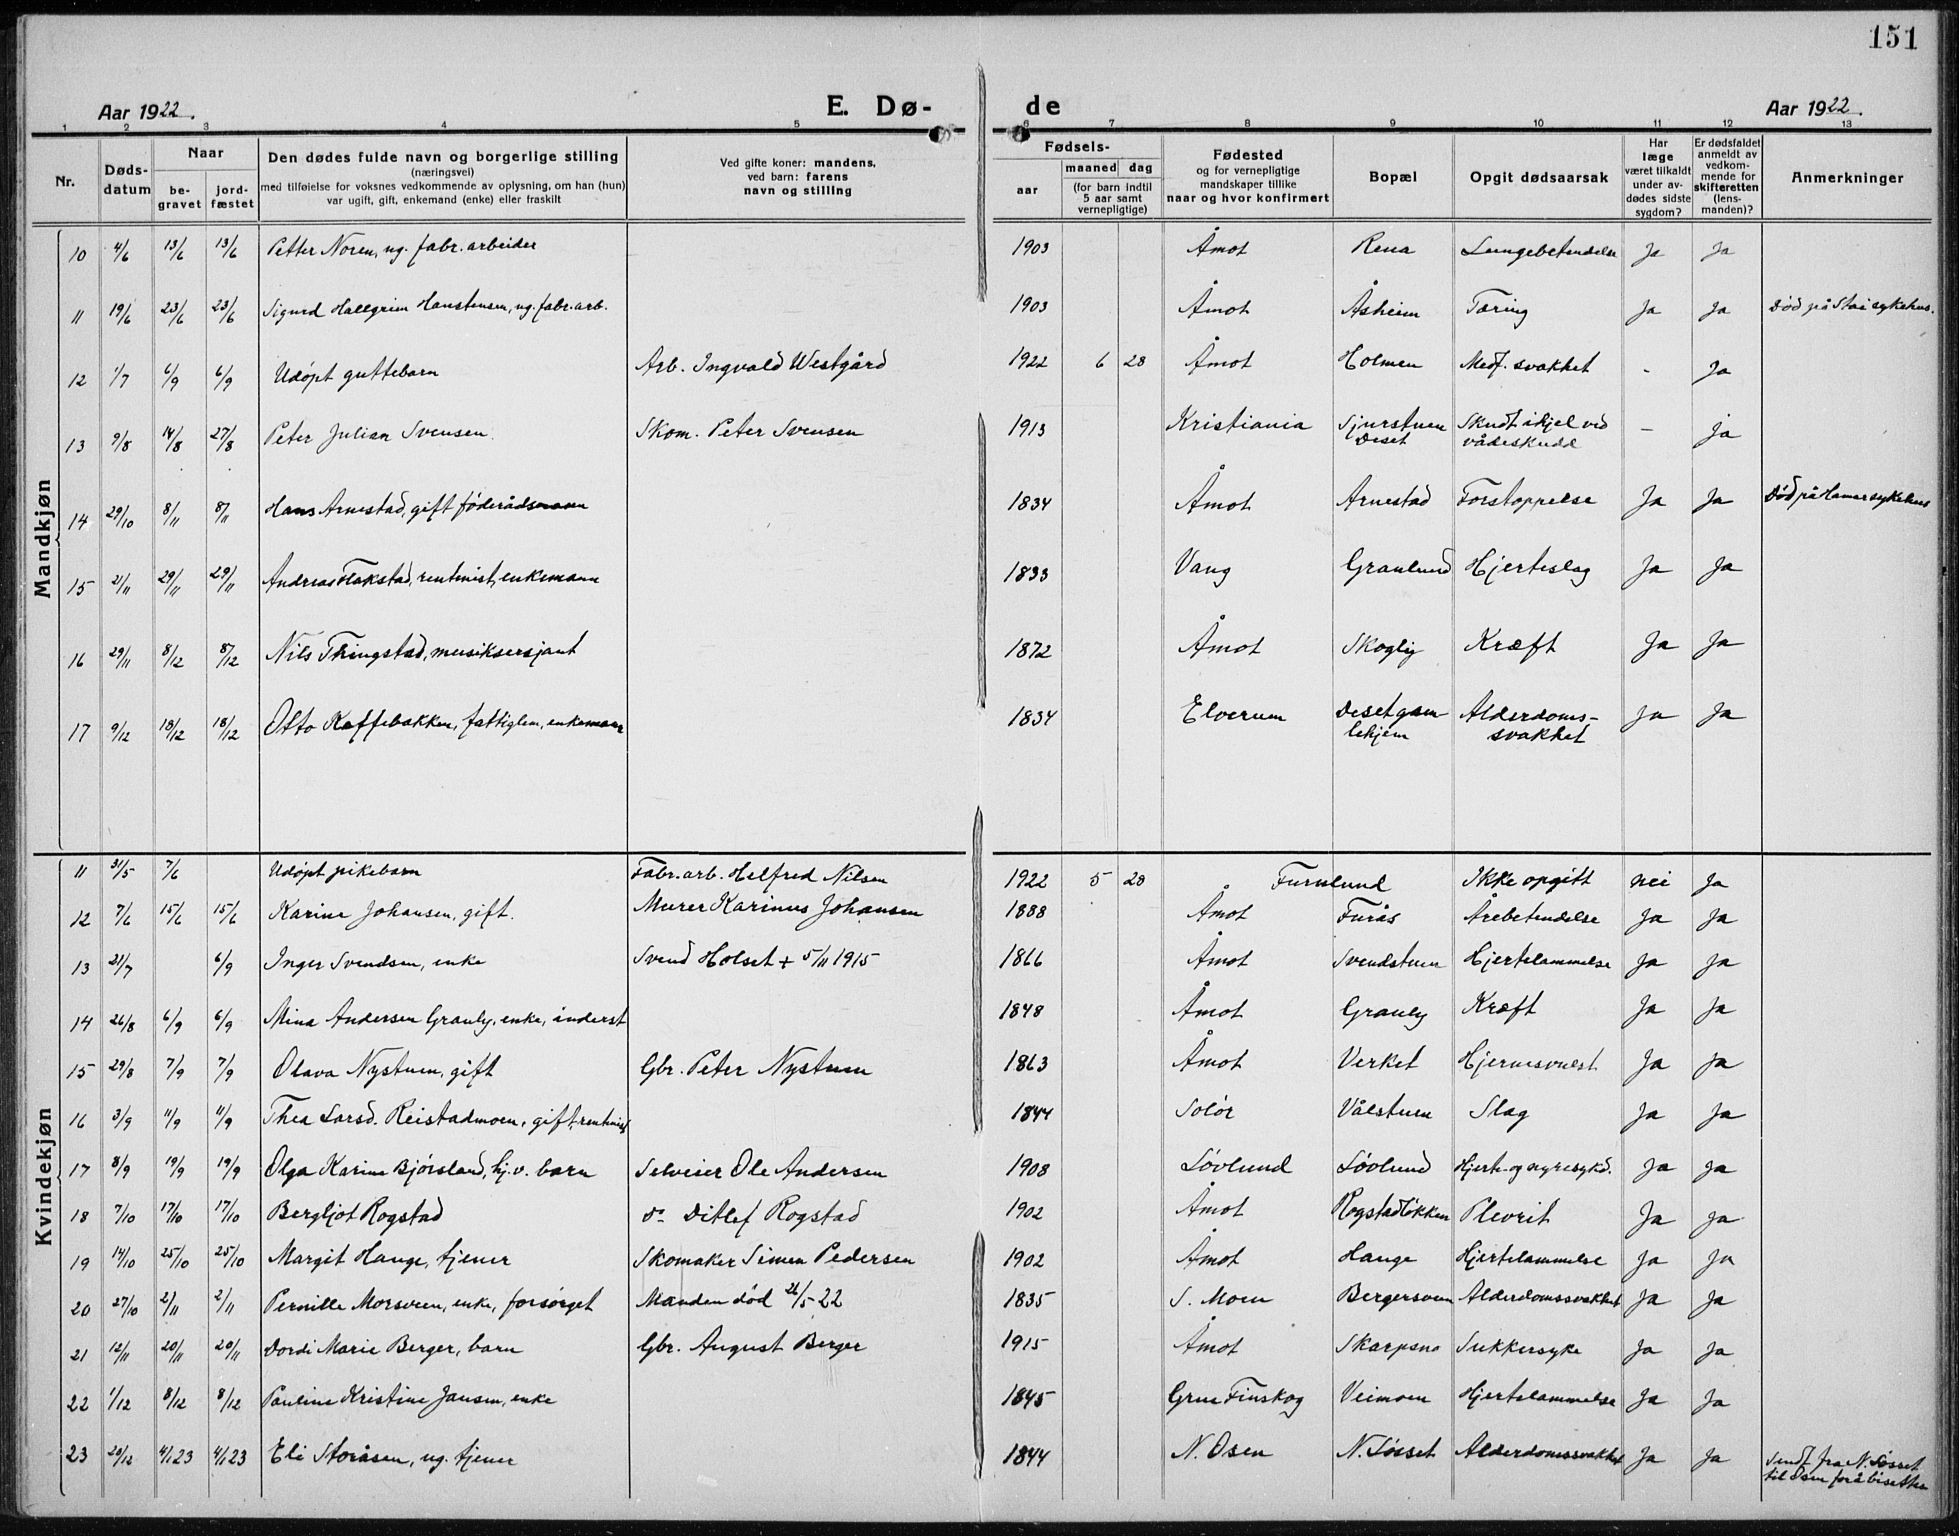 151
Aar 1922.
E. Dø-
de
Aar 1922.
1 2 3 4 5 6 7 8 9 10 11 12 13
Nr.
Døds-
datum
Naar
be-
gravet
jord-
fæstet
Den dødes fulde navn og borgerlige stilling
(næringsvei)
med tilføielse for voksnes vedkommende av oplysning, om han (hun)
var ugift, gift, enkemand (enke) eller fraskilt
Ved gifte koner: mandens,
ved barn: farens
navn og stilling
Fødsels-
aar
maaned dag
(for barn indtil
5 aar samt
vernepligtige)
Fødested
og for vernepligtige
mandskaper tillike
naar og hvor konfirmert
Bopæl
Opgit dødsaarsak
Har
læge
været tilkaldt
under av-
dødes sidste
sygdom?
Er dødsfaldet
anmeldt av
vedkom-
mende for
skifteretten
(lens-
manden)?
Anmerkninger
Mandkjøn
10 4/6 13/6 13/6 Petter Noren, ug. fabr.arbeider 1903 Åmot Rena Lungebetendelse Ja Ja
11 19/6 23/6 23/6 Sigurd Hallgrim Hanstensen, ug. fabr.arb. 1903 Åmot Åsheim Tæring Ja Ja Død på Stai sykehus.
12 1/7 6/9 6/9 Udøpt guttebarn Arb. Ingvald Westgård 1922 6 28 Åmot Holmen Medf. svakhet - Ja
13 9/8 14/8 27/8 Peter Julian Svensen Skom. Peter Svensen 1913 Kristiania Sjurstuen Deset Skudt ihjel ved vådeskudd - ja
14 29/10 8/11 8/11 Hans Arnestad, gift føderådsmann 1834 Åmot Arnestad Forstoppelse Ja Ja Død på Hamar sykehus
15 21/11 29/11 29/11 Andreas Flakstad, rentenist, enkemann 1833 Vang Granlund Hjerteslag Ja Ja
16 29/11 8/12 8/12 Nils Thingstad, musiksersjant 1872 Åmot Skoglig Kræft Ja Ja
17 9/12 18/12 18/12 Otto Kaffebakken, fattiglem, enkemann 1834 Elverum Deset gam lehjem Alderdoms- svakhet Ja Ja
Kvindekjøn
11 31/5 7/6 Udøpt pikebarn Fabr.arb. Helfred Nilsen 1922 5 28 Furulund Ikke opgitt nei Ja
12 7/6 15/6 15/6 Karine Johansen, gift. Murer Karinus Johansen 1888 Åmot Furås Årebetendelse Ja Ja
13 21/7 6/9 Inger Svendsen, enke Svend Holset + 5/11 1915 1866 Åmot Svendstuen Hjertelammelse Ja Ja
14 26/8 6/9 6/9 Mina Andersen Granly, enke, inderst 1848 Åmot Granly Kræft Ja Ja
15 29/8 7/9 7/9 Olava Nystuen, gift Gbr. Peter Nystuen 1863 Åmot Verket Hjernesvulst Ja Ja
16 3/9 11/9 11/9 Thea Larsd. Reistadmoen, gift, rentenist 1844 Solør Vålstuen Slag Ja Ja
17 8/9 19/9 19/9 Olga Karine Bjørsland, hj.v. barn Selveier Ole Andersen 1908 Løvlund Løvlund Hjerte- og nyresykd. Ja Ja
18 7/10 17/10 17/10 Bergljot Rogstad do Ditlef Rogstad 1902 Åmot Rogstadløkken Plevrit Ja Ja
19 14/10 25/10 25/10 Margit Hauge, tjener Skomaker Simen Pedersen 1902 Åmot Hauge Hjertelammelse Ja Ja
20 27/10 2/11 2/11 Pernille Morsveen, enke, forsørget Manden død 26/5-22 1835 S. Moen Bergersveen Alderdomssvakhet Ja Ja
21 12/11 20/11 20/11 Dordi Marie Berger, barn Gbr. August Berger 1915 Åmot Skarpsno Sukkersyke Ja Ja
22 1/12 8/12 8/12 Pauline Kristine Jansen, enke 1845 Grue Finskog Veimoen Hjertelammelse Ja Ja
23 20/12 4/1 23 4/1 23 Eli Storåsen, ug. tjener 1844 N. Osen N. Løsset Alderdomssvakhet Ja Ja Sendt fra N. Løsset
til Osen for å bisettes